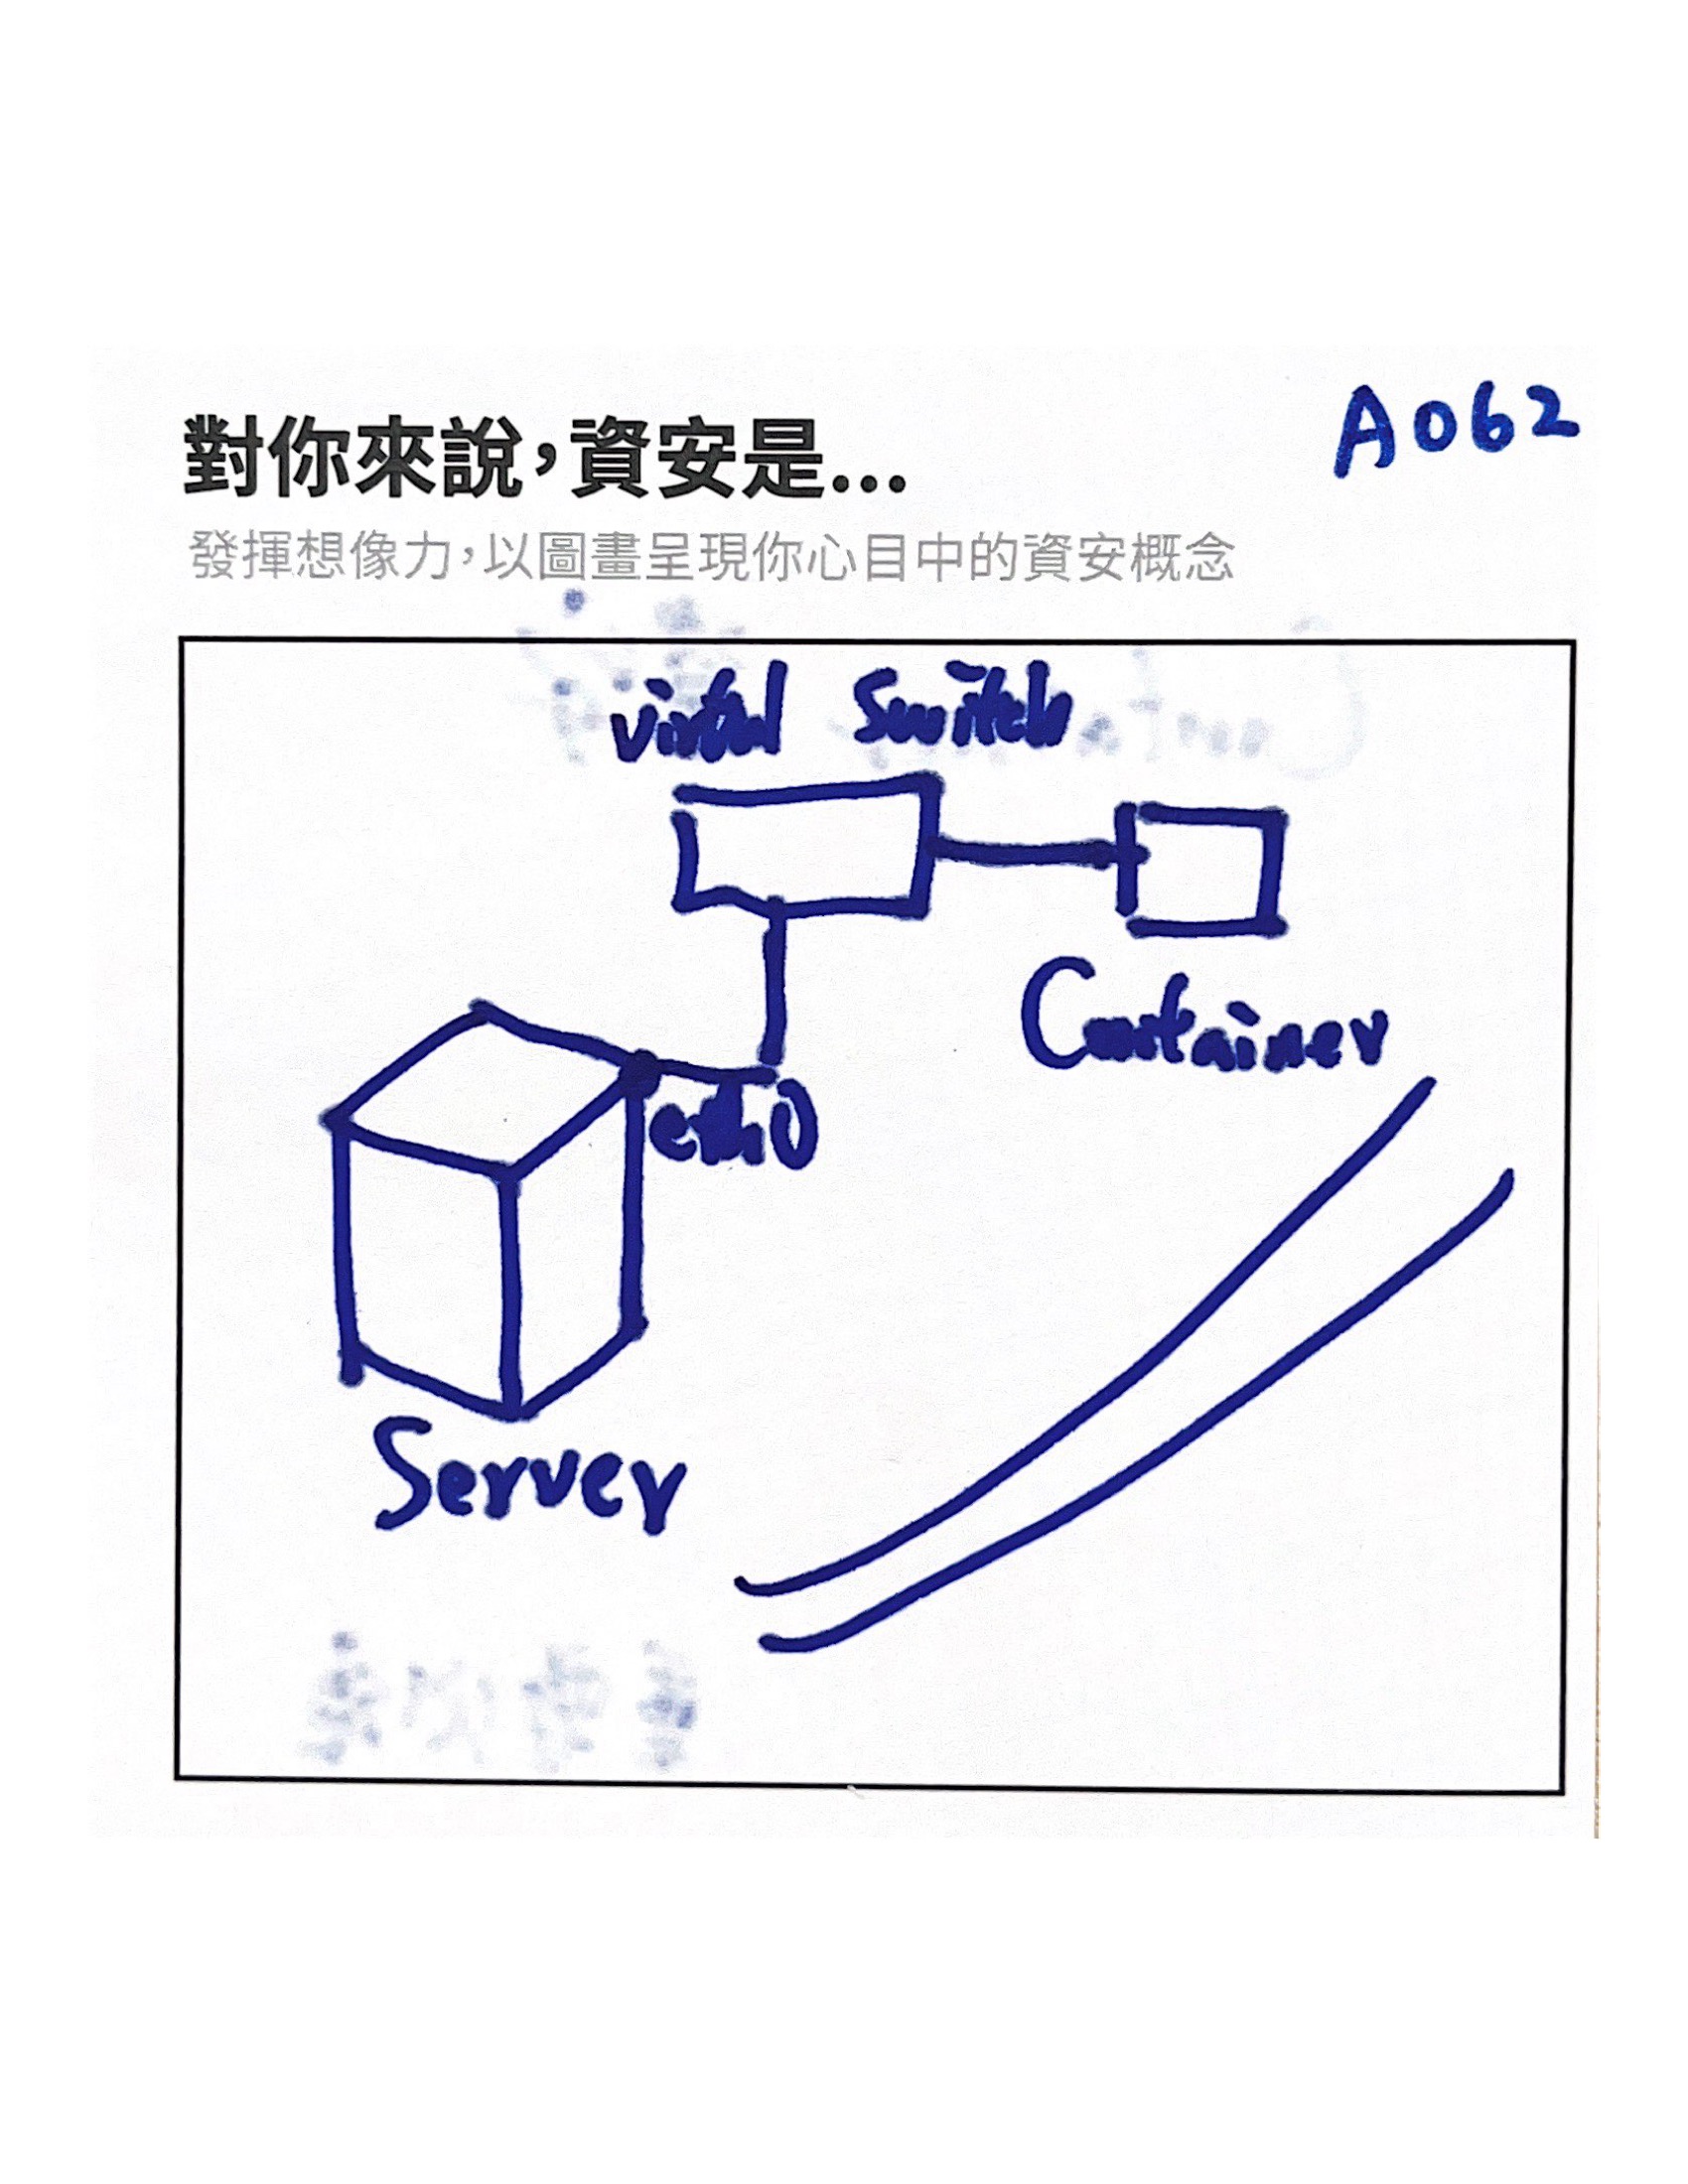 對你來說,資安是...
A062
發揮想像力,以圖畫呈現你心目中的資安概念
virtual Switch
Container
eth0
Server